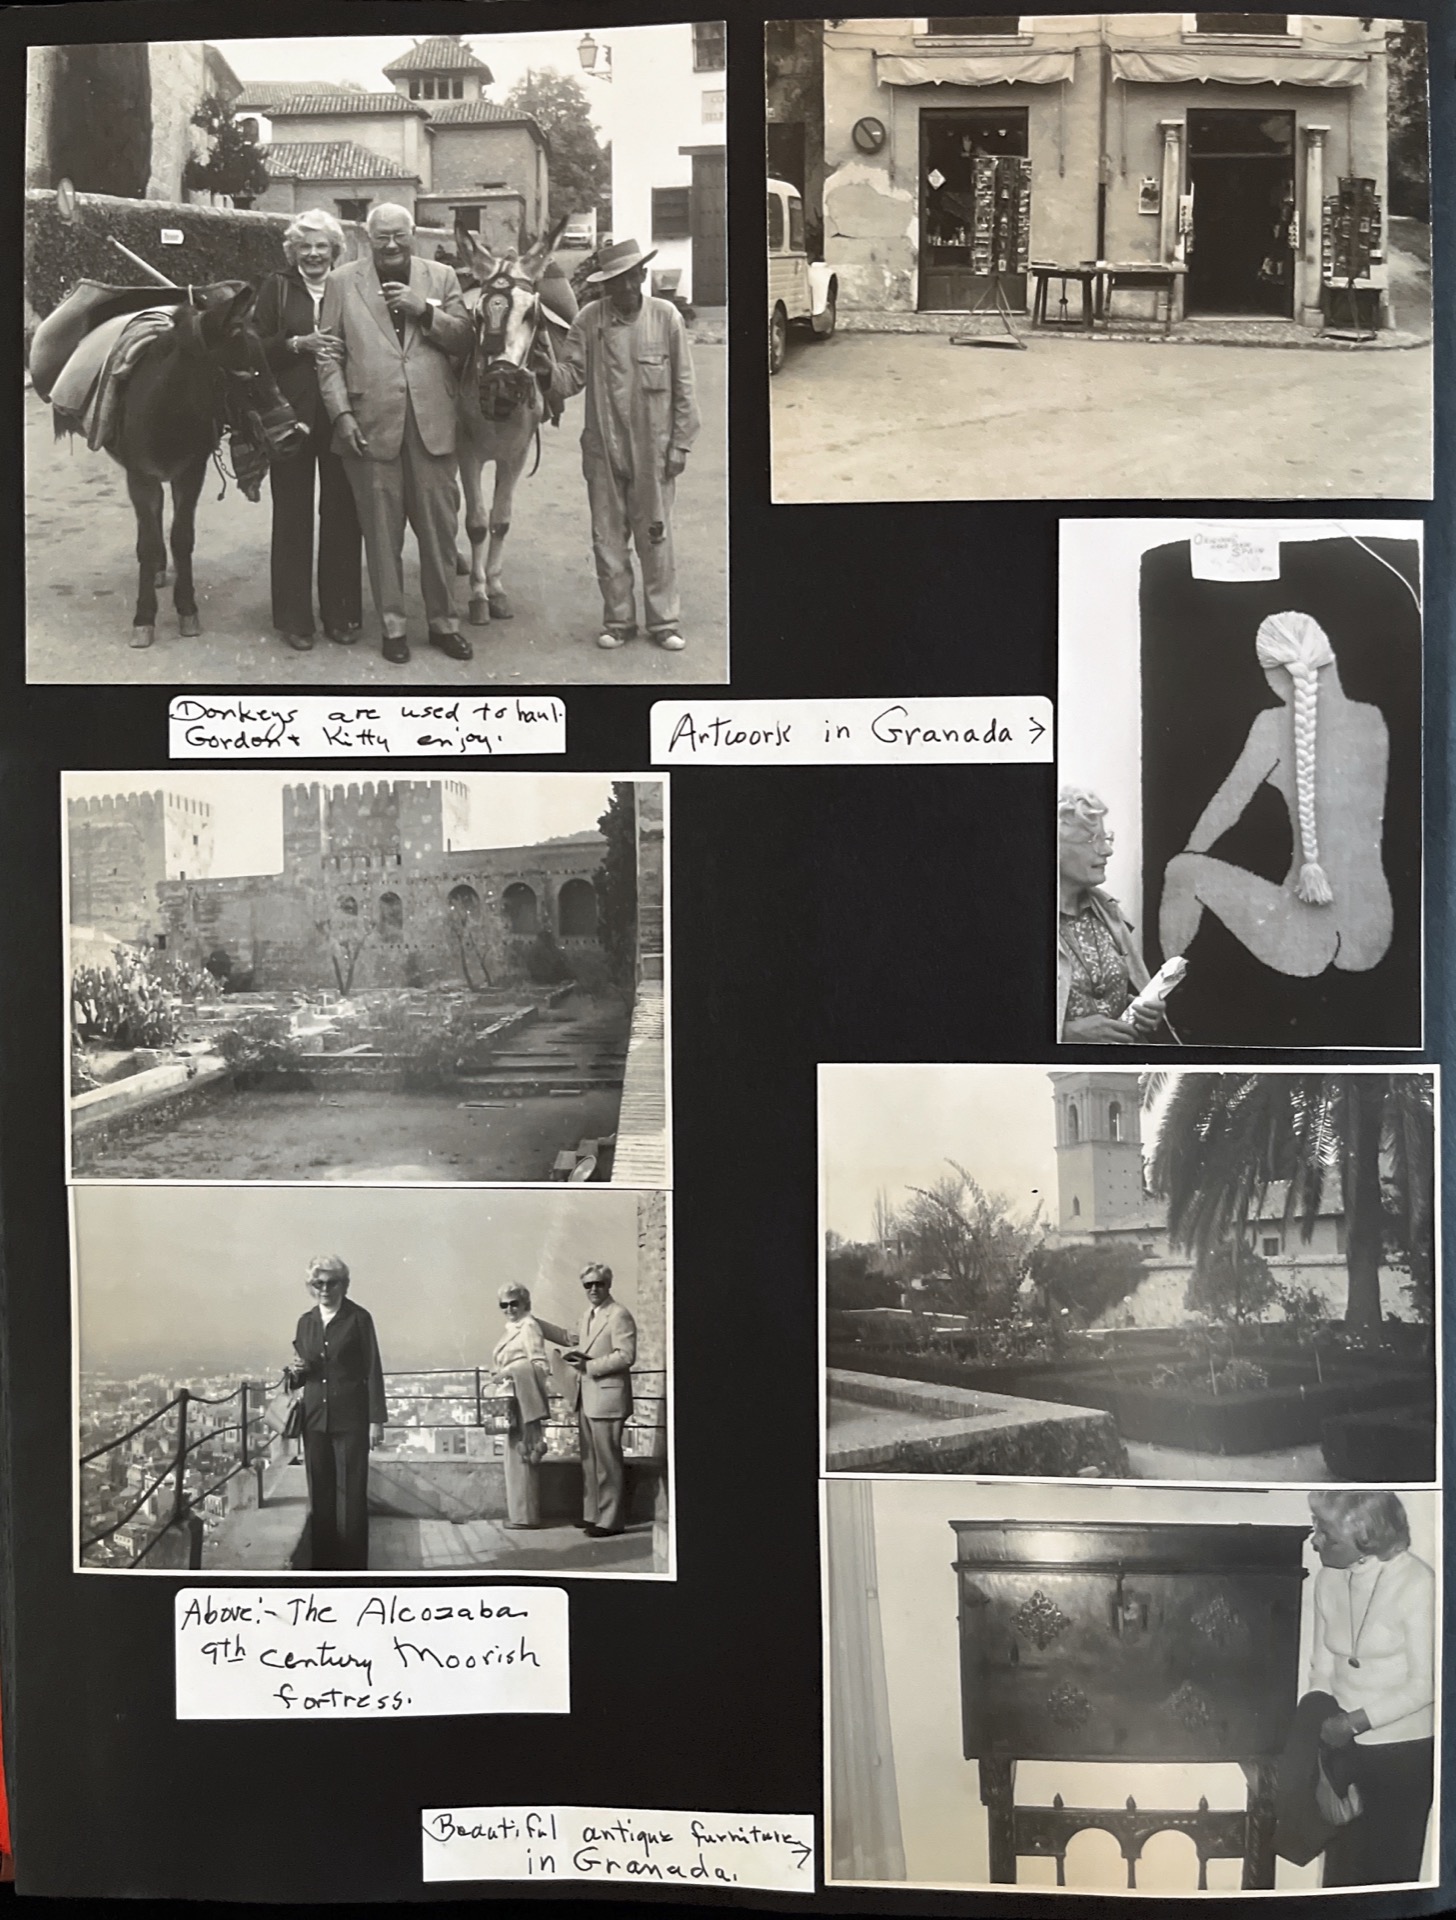 Donkeys are used to haul.
Gordon + Kitty enjoy.
Artwork in Granada →
ORIGINAL
SPAIN
Above:- The Alcozaba
9th century Moorish
fortress.
Beautiful antique furniture →
in Granada.